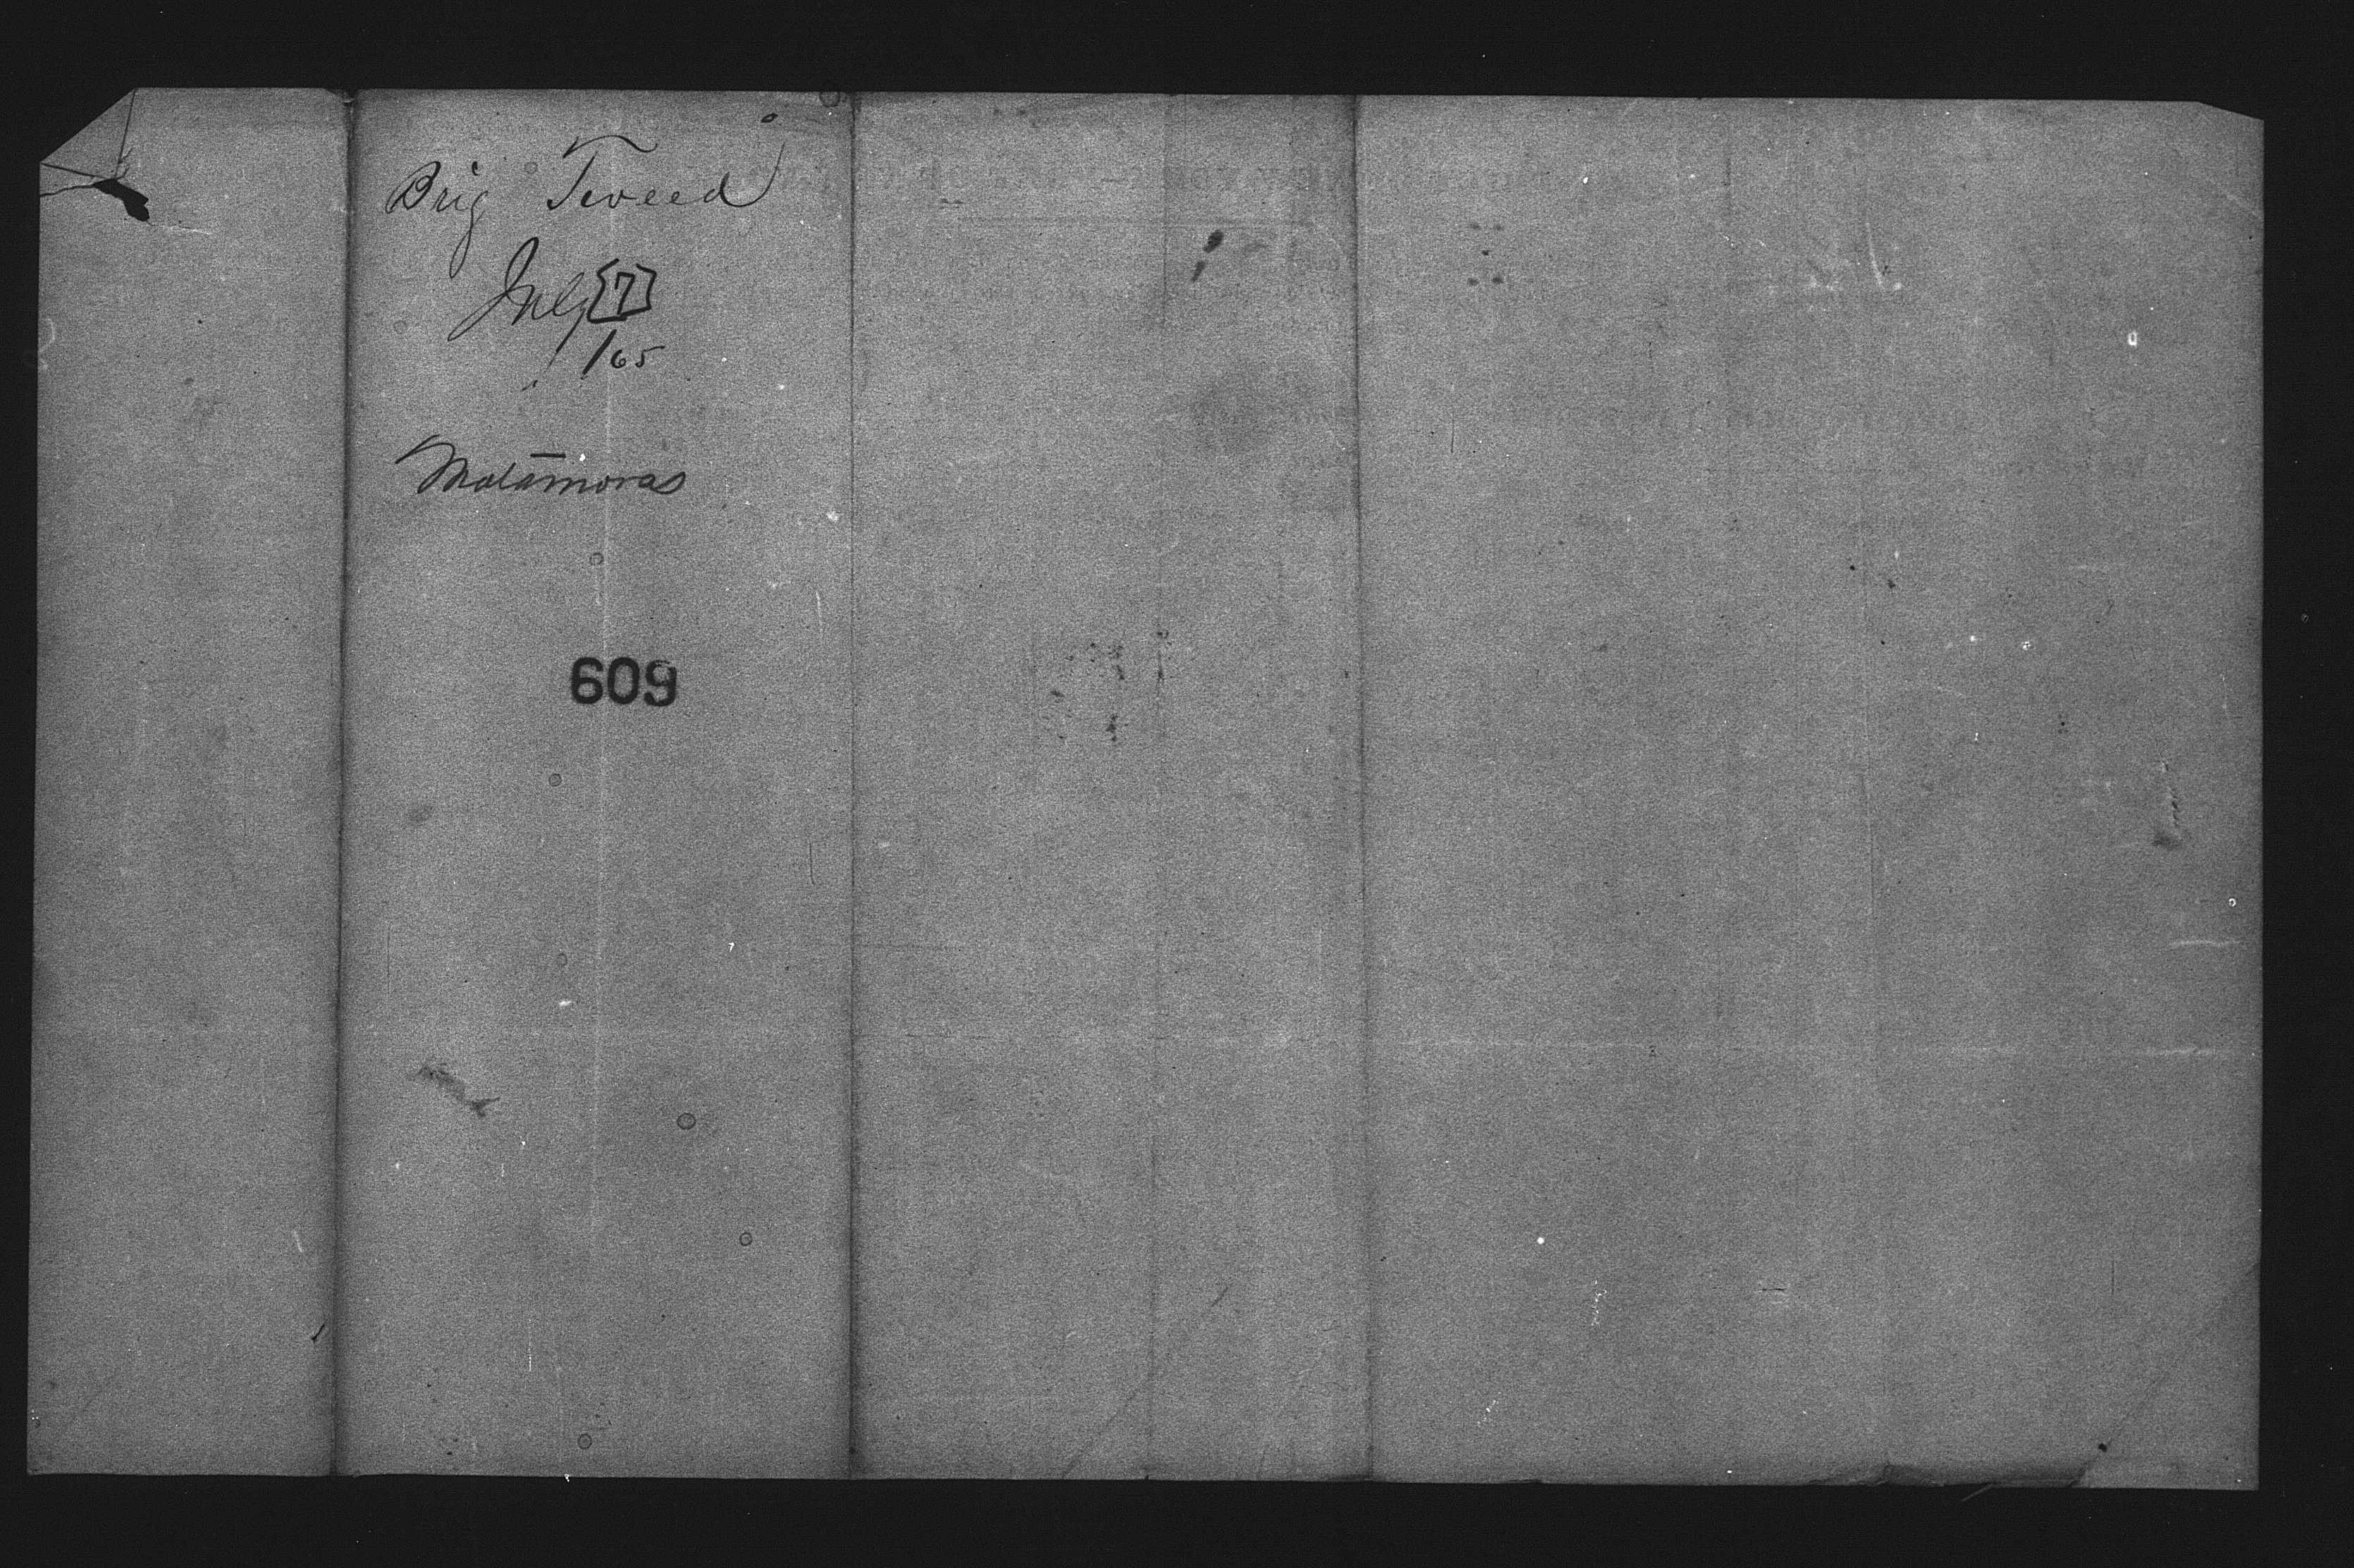 Brig Tweed
July [7]
/65
Matamoras
609